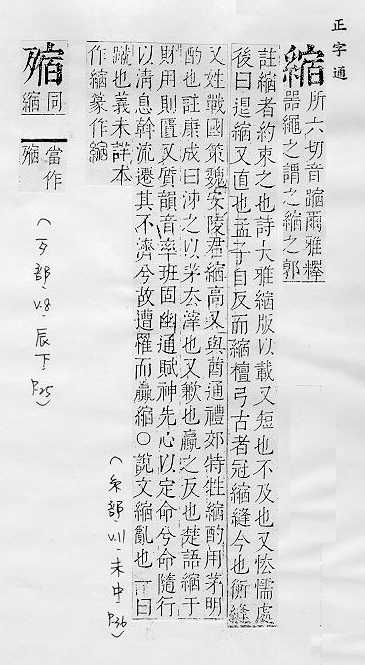 正字通
縮
所六切音蹜爾雅釋
器繩之謂之縮之郭
註縮者約束之也詩大雅縮版以載又短也不及也又恡懦處
後曰退縮又直也孟子自反而縮檀弓古者冠縮縫今也衡縫
又姓戰國策魏安陵君縮高又與茜通禮郊特牲縮酌用茅明
酌也註康成曰泲之以茅去滓也又歉也贏之反也楚語縮于
財用則匱又質韻音率班固幽通賦神先心以定命兮命隨行
以消息斡流遷其不濟兮故遭罹而贏縮○說文縮亂也一曰
蹴也義未詳本
作縮篆作縮
(糸部‧V.11‧未中‧P.36)
同
縮
當作
(歹部‧V.8‧辰下‧P.25)